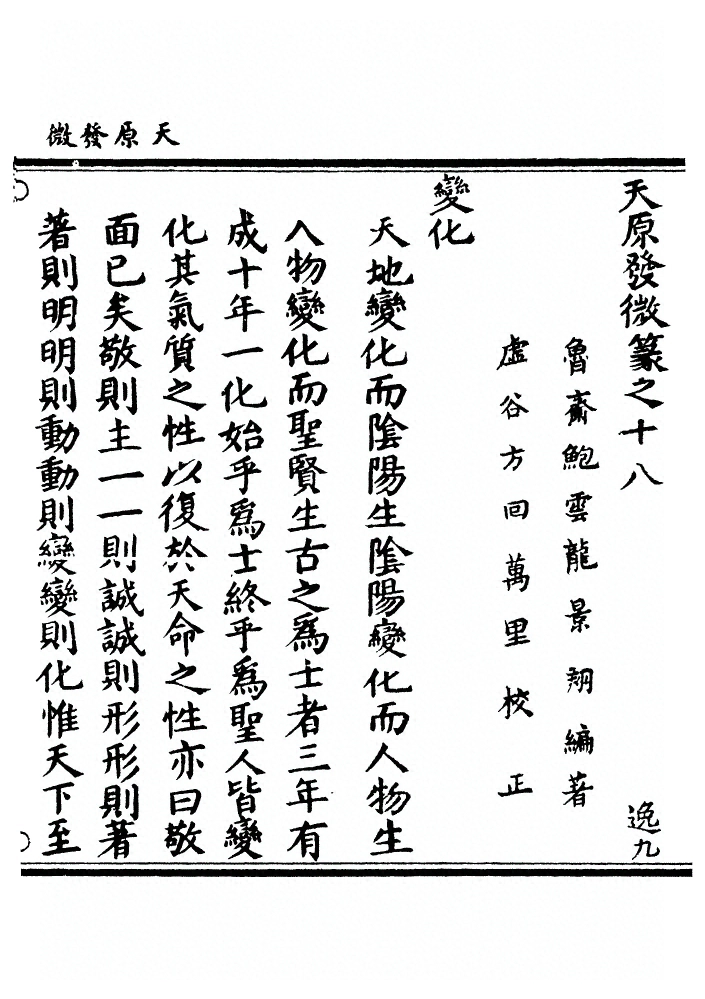 天原發微
天原發微篆之十八
逸九
魯齋鮑雲龍景翔編著
虛谷方回萬里校正
變化
天地變化而陰陽生陰陽變化而人物生
人物變化而聖賢生古之爲士者三年有
成十年一化始乎爲士終乎爲聖人皆變
化其氣質之性以復於天命之性亦曰敬
面已矣敬則主一一則誠誠則形形則著
著則明明則動動則變變則化惟天下至